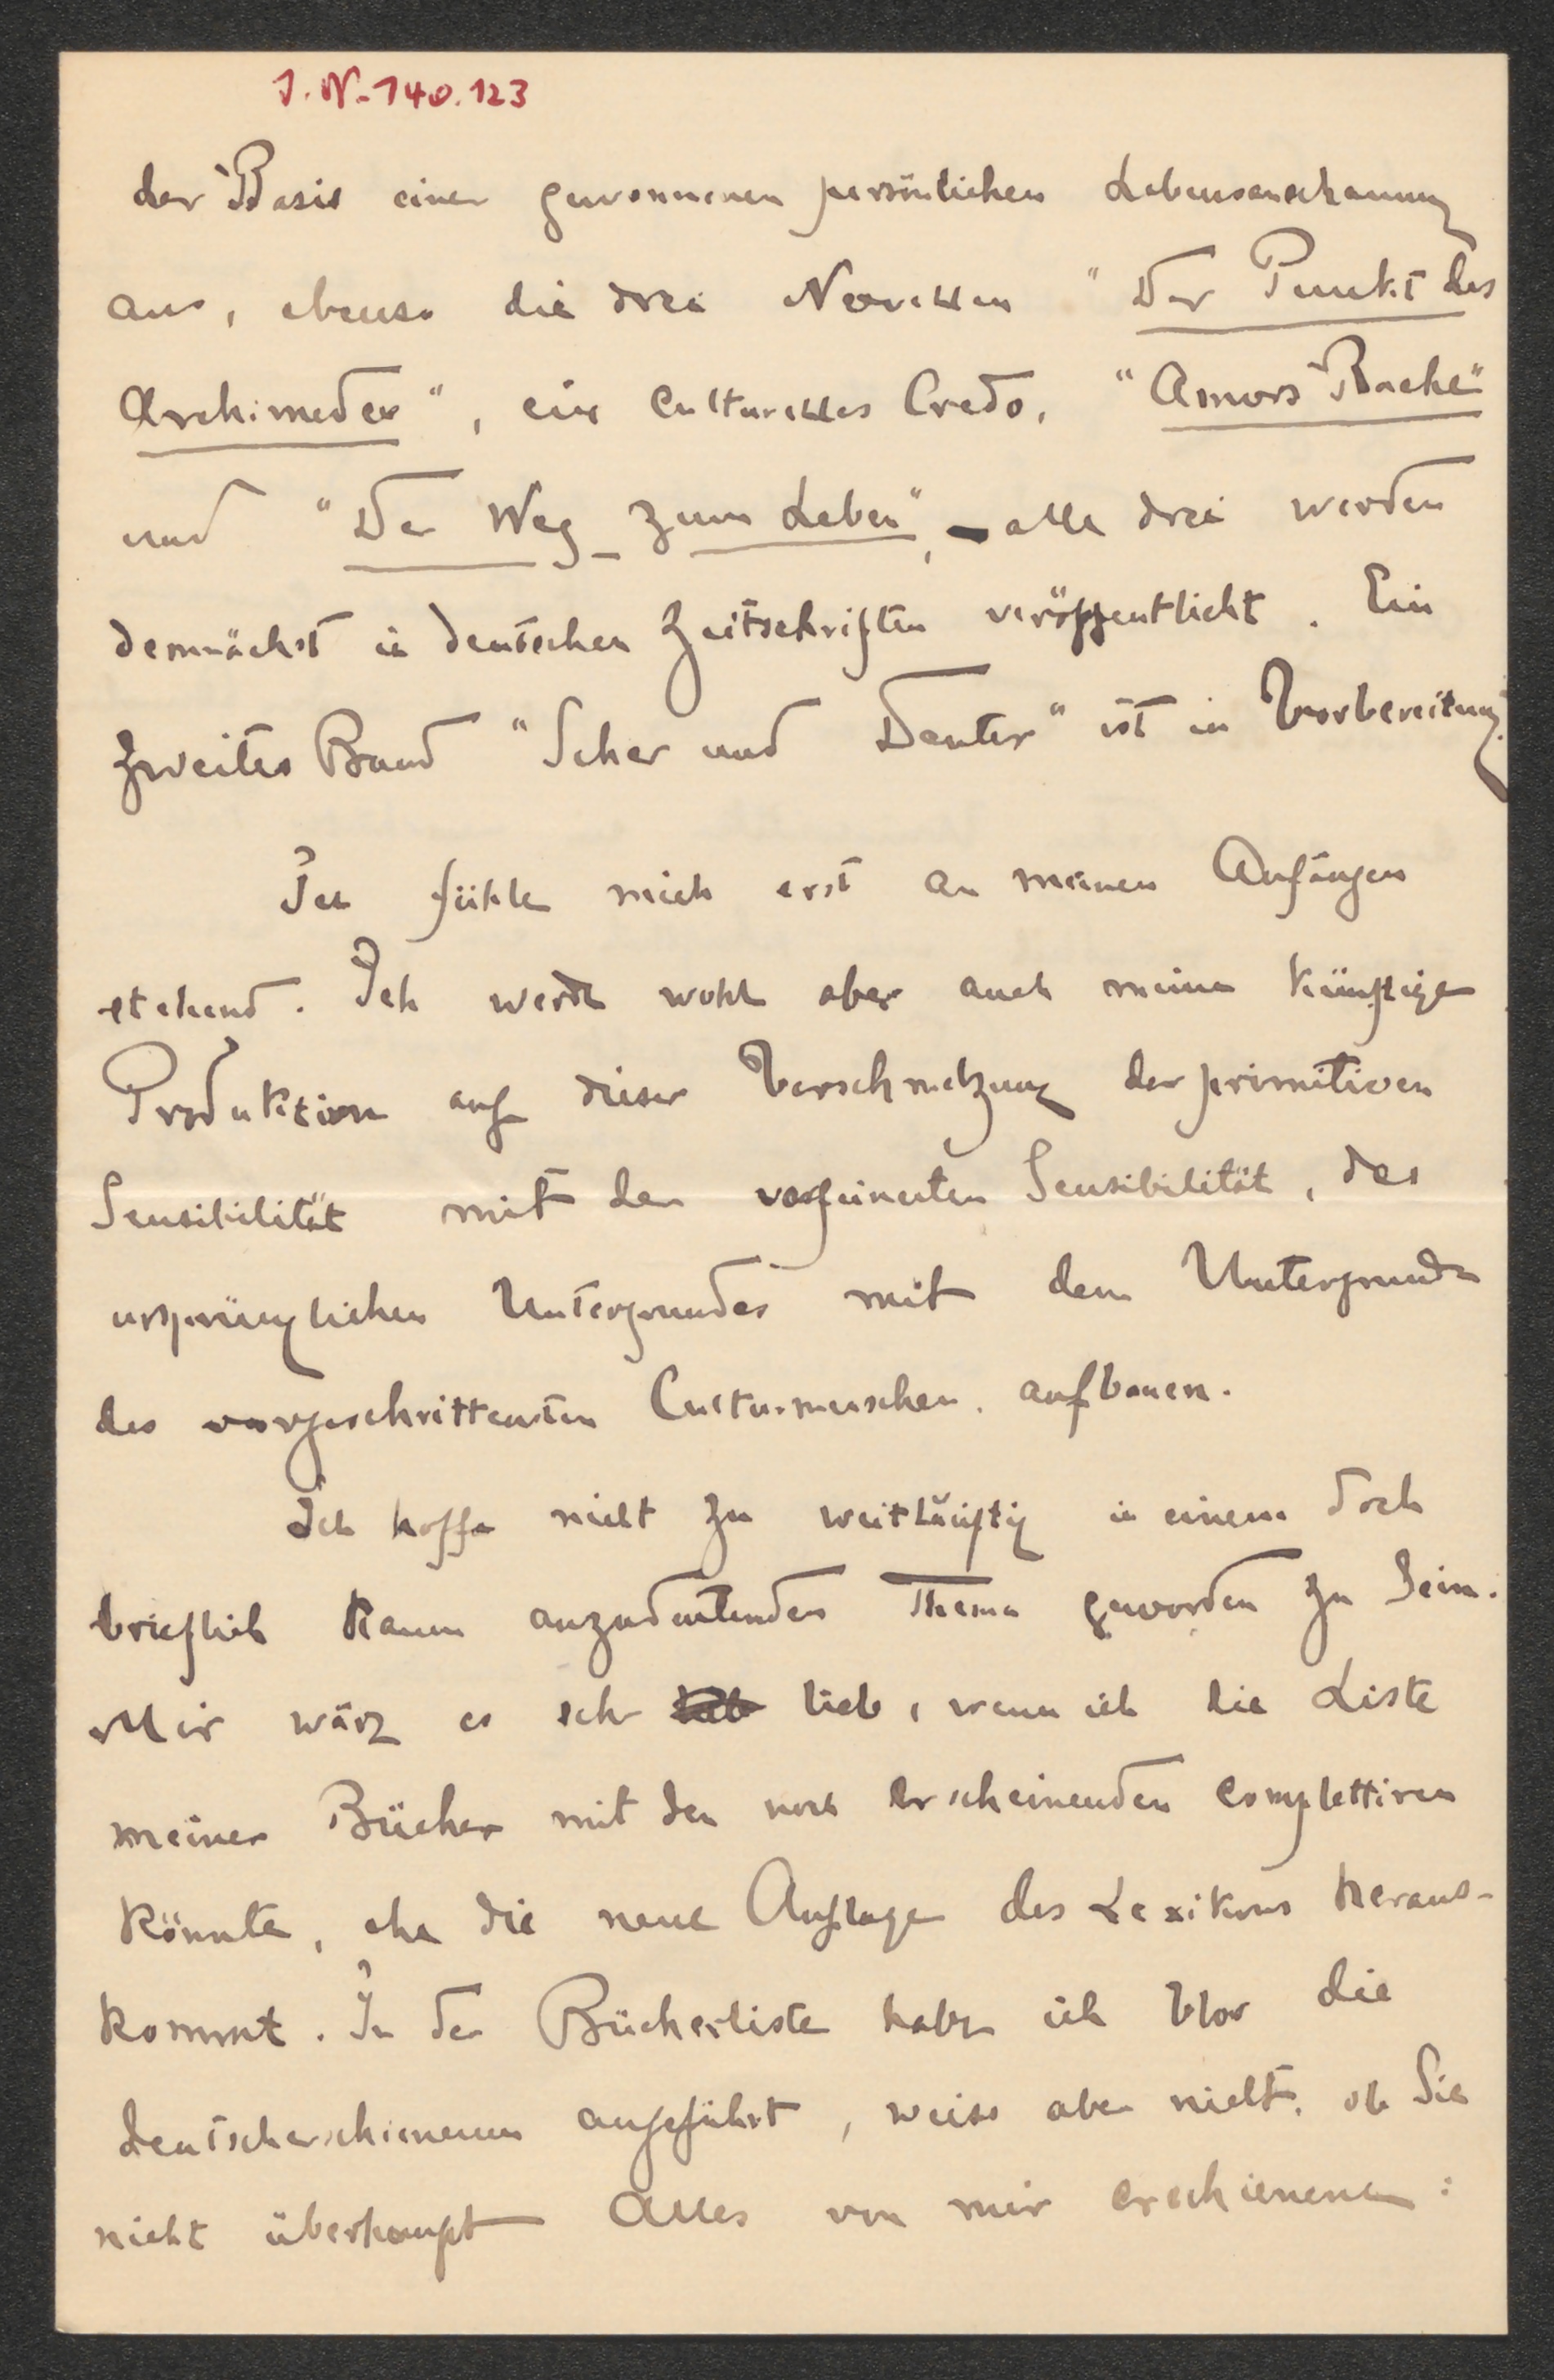 J. N. 140.123
der Basis einer gewonnenen persönlichen Lebensanschauung
aus, ebenso die drei Novellen "Der Punkt des
Archimedes", ein culturelles Credo, "Amors Rache"
und "Der Weg zum Leben", – alle drei werden
demnächst in deutschen Zeitschriften veröffentlicht. Ein
zweites Band "Seher und Deuter" ist in Vorbereitung.
Ich fühle mich erst an meinen Anfängen
stehend. Ich werde wohl aber auch meine künftige
Produktion auf dieser Verschmelzung der primitiven
Sensibilität mit der verfeinerten Sensibilität, des
ursprünglichen Untergrundes mit dem Untergrunde
des vorgeschrittensten Culturmenschen, aufbauen.
Ich hoffe nicht zu weitläuftig in einem doch
brieflich kaum anzudeutenden Thema geworden zu sein.
Mir wäre es sehr lieb, wenn ich die Liste
meiner Bücher mit den noch erscheinenden complettiren
könnte, ehe die neue Auflage des Lexikons heraus-
kommt. In der Bücherliste habe ich blos die
deutscherschienenen angeführt, weiss aber nicht, ob Sie
nicht überhaupt Alles von mir erschienene: